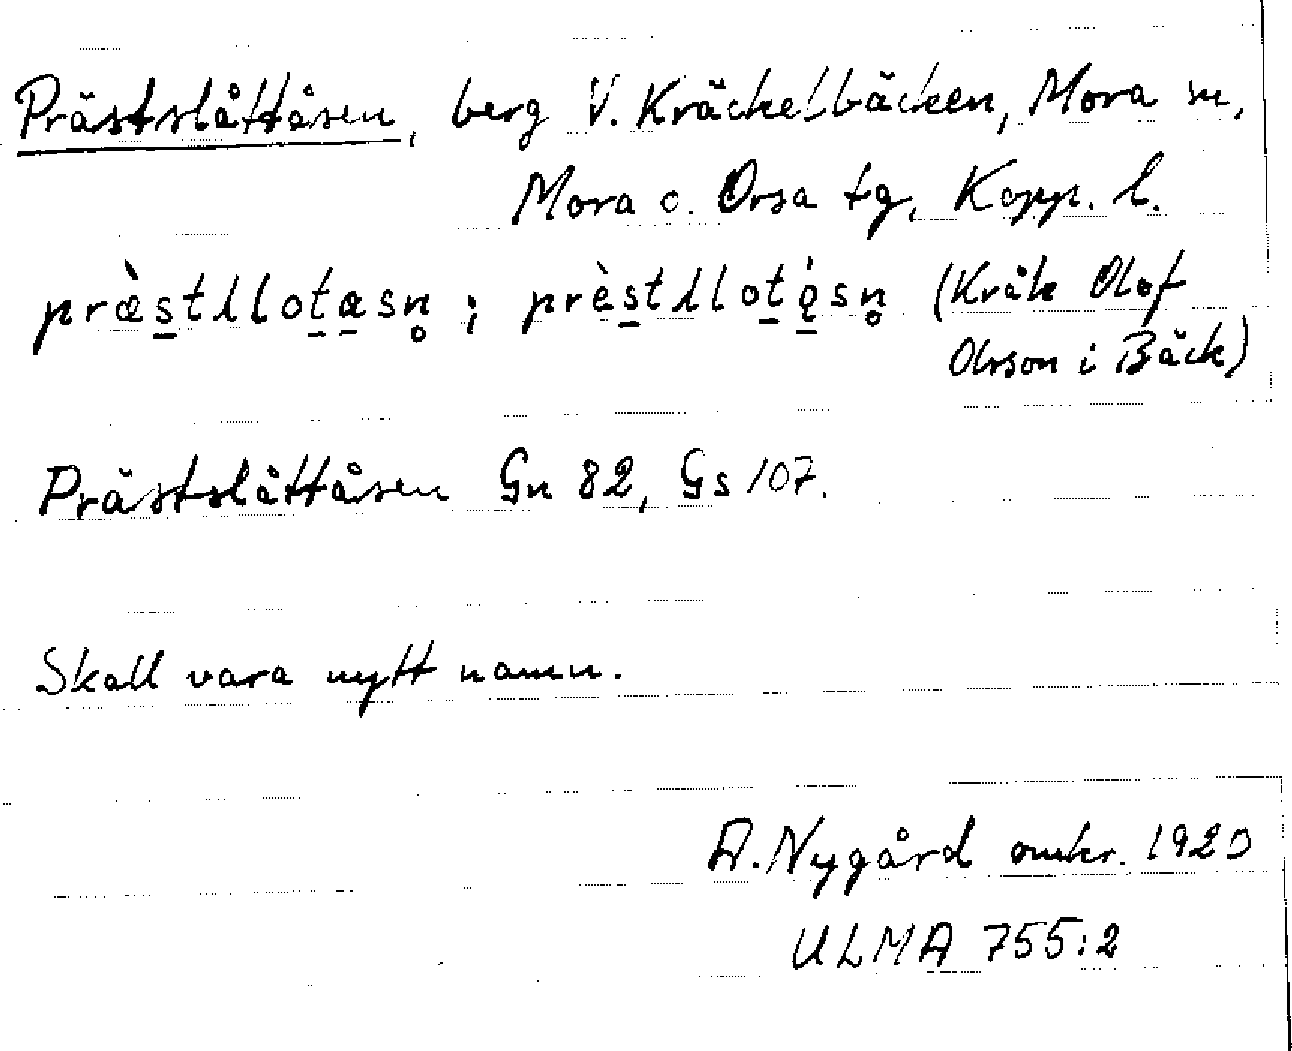 Prästslåttåsen, berg V. Kräckelbäcken, Mora sn,
Mora o. Orsa tg, Kopp. l.
præ̀s̲tllot̲æ̲sn̥ ; près̲tllot̲ǫ̲́sn̥ (Kråk Olof
Olrson i Bäck)
Prästslåttåsen Gn 82, Gs 107.
Skall vara nytt namn.
A. Nygård omkr. 1920
ULMA 755:2